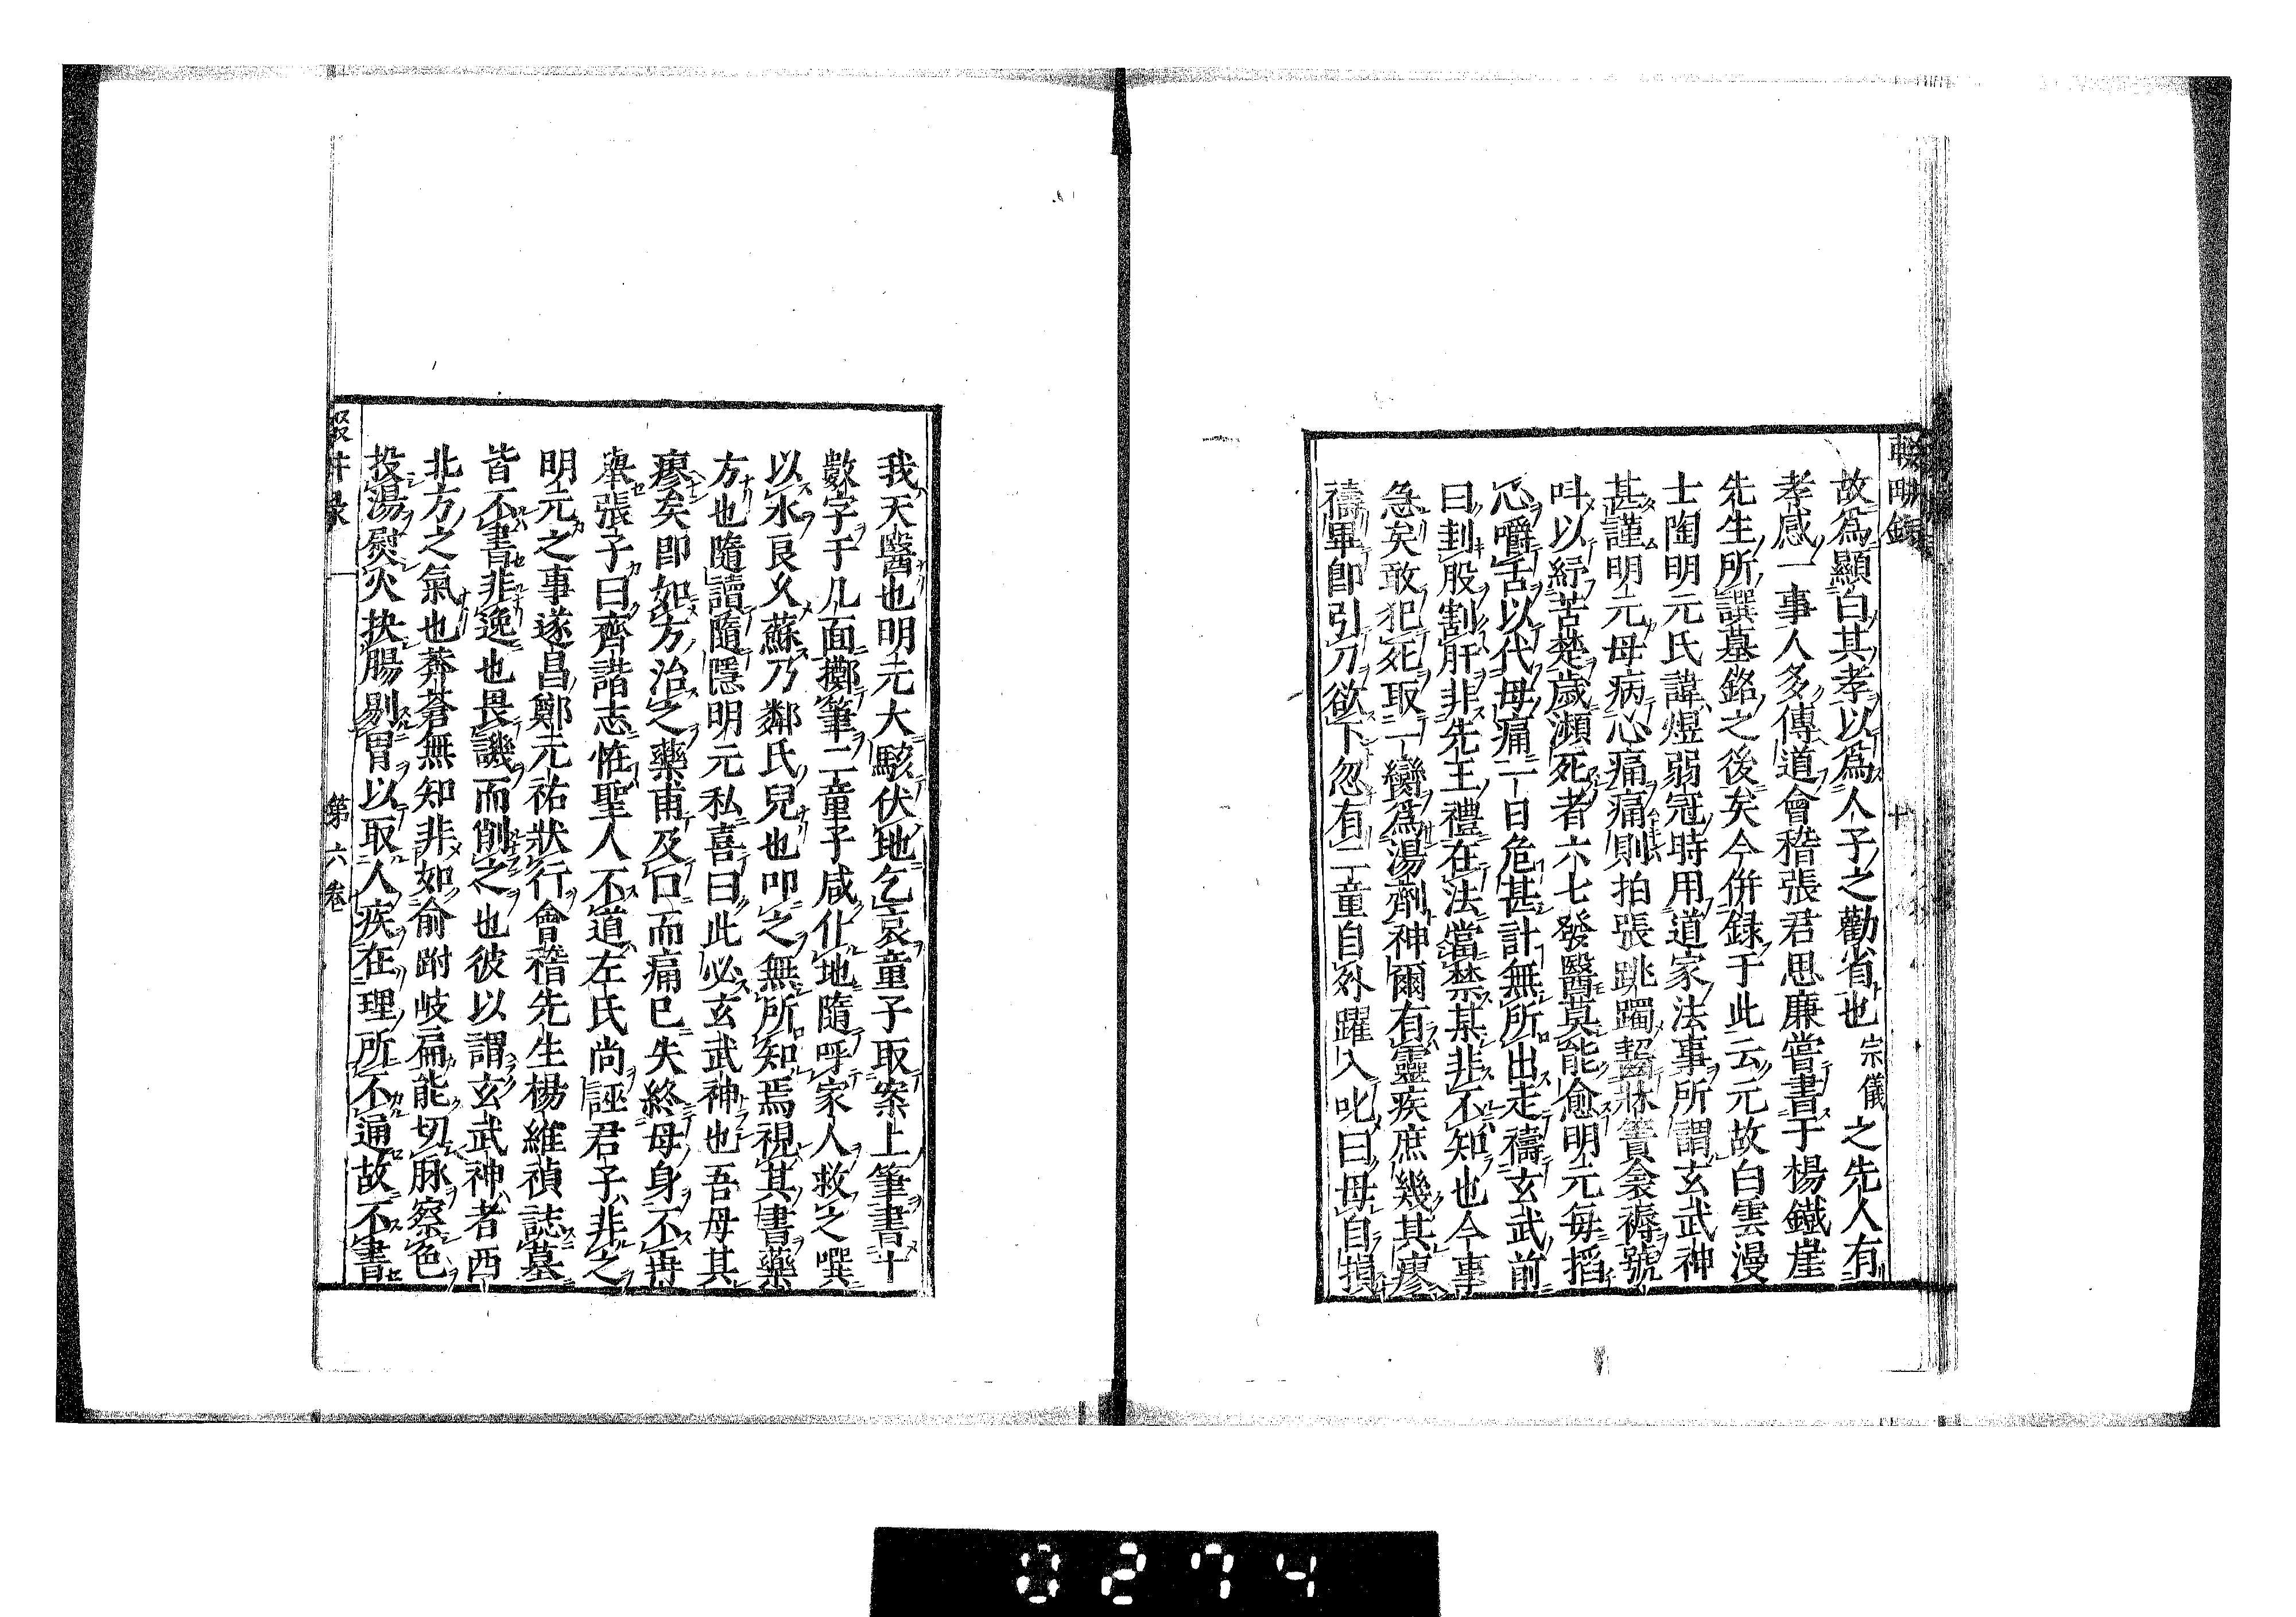 輟畊録
十
故爲顯白其孝以爲人子之勸省也宗儀之先人有
孝感一事人多傳道會稽張君思廉嘗書于楊鐵崖
先生所譔墓銘之後矣今併録于此云元故白雲漫
士陶明元氏諱煜弱冠時用道家法事所謂玄武神
甚謹明元母病心痛痛則拍張跳躅齧牀簀衾褥號
呌以紓苦楚歲瀕死者六七發醫莫能愈明元毎搯
心嚼舌以代母痛一日危甚計無所出走禱玄武前
曰刲股割肝非先王禮在法當禁某非不知也今事
急矣敢犯死取一臠爲湯劑神爾有靈疾庶幾其瘳
禱畢即引刀欲下忽有二童自外躍入叱曰母自損
我天醫也明元大駭伏地乞哀童子取案上筆書十
數字于几面擲筆二童子咸仆地隨呼家人救之噀
以水良乆蘇乃鄰氏兒也叩之無所知焉視其書藥
方也隨讀隨隱明元私喜曰此必玄武神也吾母其
瘳矣即如方治之藥甫及口而痛已失終母身不再
舉張子曰齊諧志恠聖人不道左氏尚誣君子非之
明元之事遂昌鄭元祐狀行會稽先生楊維禎誌墓
皆不書非逸也畏譏而削之也彼以謂玄武神者西
北方之氣也莽蒼無知非如俞跗岐扁能切脉察色
投湯熨火抉腸剔胃以取人疾在理所不通故不書
第六卷